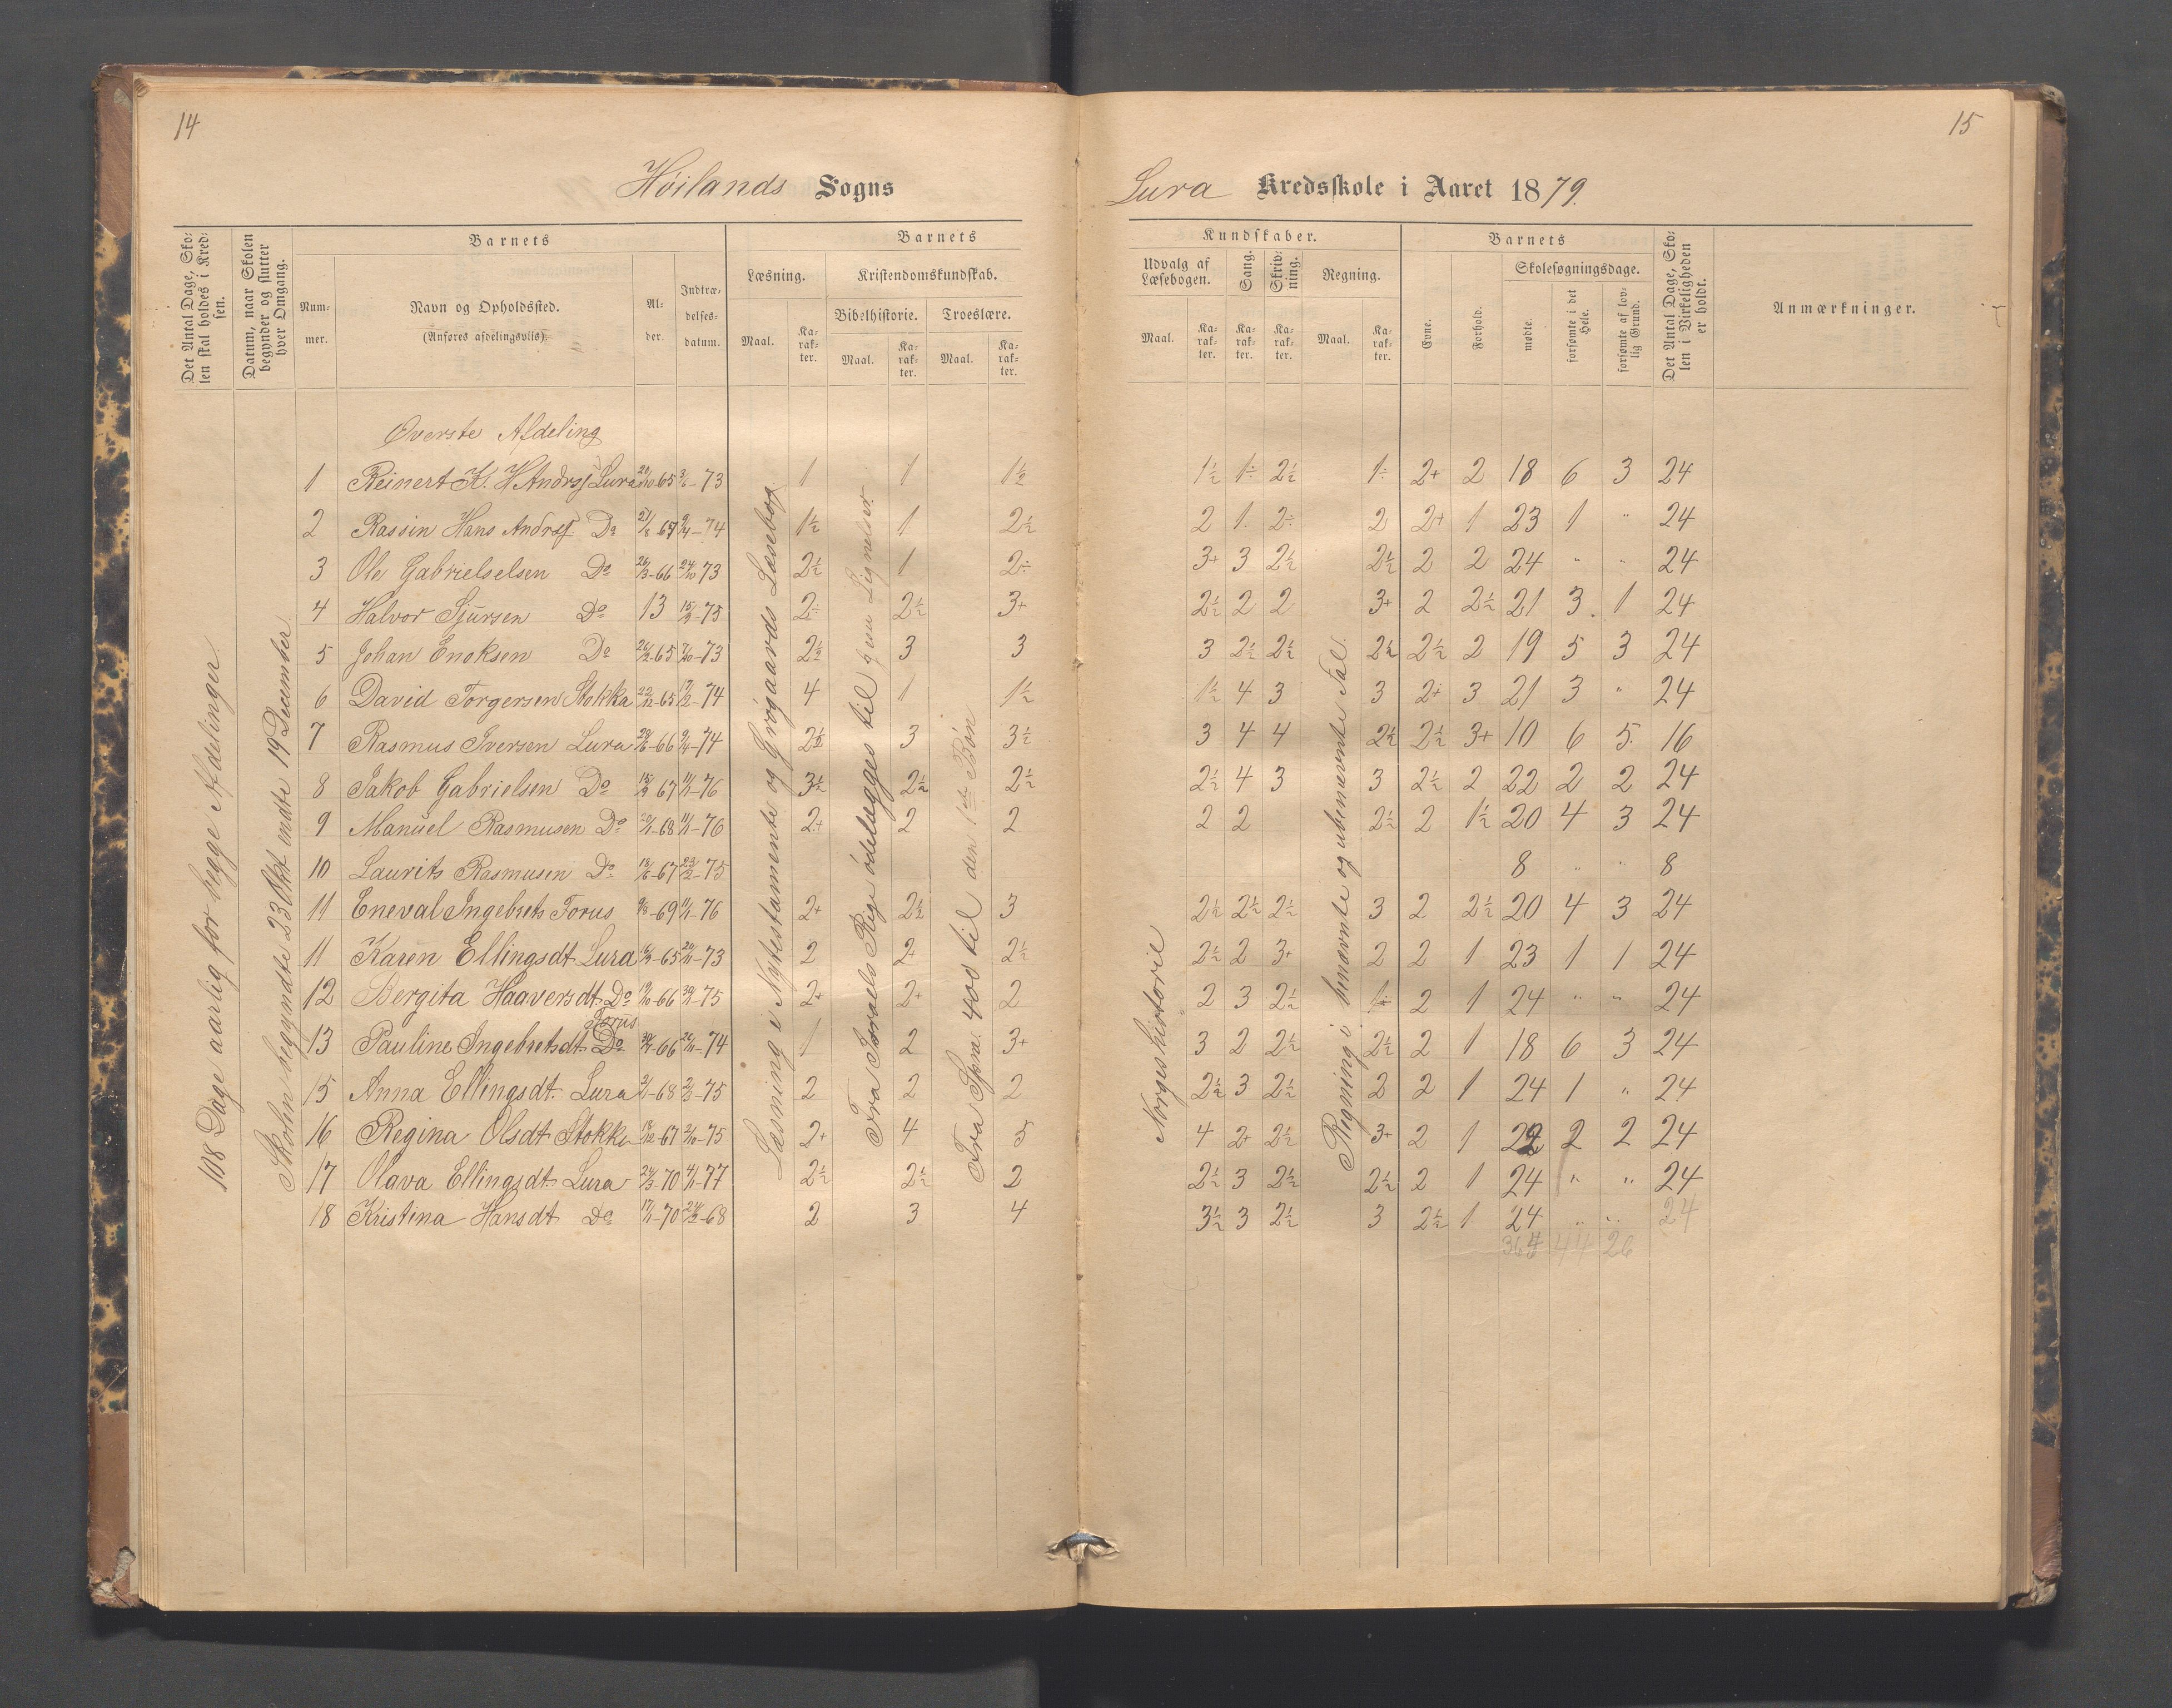 14
15
Høilands Sogns
Lura Kredsskole i Aaret 1879.
Det Antal Dage, Skolen skal holdes i Kredsen.
Datum, naar Skolen begynder og slutter hver Omgang.
Barnets
Nummer.
Navn og Opholdssted.
(Anføres afdelingsviis).
Alder.
Indtrædelsesdatum.
Barnets
Læsning.
Maal.
Karakter.
Kristendomskundskab.
Bibelhistorie.
Maal.
Karakter.
Troeslære.
Maal.
Karakter.
Kundskaber.
Udvalg af Læsebogen.
Maal.
Karakter.
Sang.
Karakter.
Skrivning.
Karakter.
Regning.
Maal.
Karakter.
Barnets
Evne.
Forhold.
Skolesøgningsdage.
mødte.
forsømte i det Hele.
forsømte af lovlig Grund.
Det Antal Dage, Skolen i Virkeligheden er holdt.
Anmærkninger.
108 Dage aarlig for begge Afdelinger
Skolen begyndte 23 Okt endte 19 December
Læsning i Nytestamente og Grøgaards Læsebog
Fra Israels Rige ødelægges til Jesu Lignelser.
Fra Spm. 400 til den 1ste Bøn
Norgeshistorie
Regning i benævnte og ubenævnte Tal.
Øverste Afdeling
1 Reinert K. H Andrsf Lura 20/10-65 3/6-73 1 1 1½ 1½ 1÷ 2½ 1÷ 2+ 2 18 6 3 24
2 Rassin Hans Andrsf Do 21/8-67 9/4-74 1½ 1 2½ 2 1 2÷ 2 2+ 1 23 1 " 24
3 Ole Gabrielselsen Do 26/3-66 24/10-73 2½ 1 2÷ 3+ 3 2½ 2½ 2 2 24 " " 24
4 Halvor Sjursen Do 13 2÷ 2½ 3+ 2½ 2 2 3+ 2 2½ 21 3 1 24
5 Johan Enoksen Do 7/10-73 2½ 3 3 3 2½ 2½ 2½ 2½ 2 19 5 3 24
6 David Torgersen Stokka 22/12-65 17/2-74 4 1 1½ 1½ 4 3 3 2+ 3 21 3 " 24
7 Rasmus Iversen Lura 2½ 3 3½ 3 4 4 2½ 2½ 3+ 10 6 5 16
8 Jakob Gabrielsen Do 11/1-76 3½ 2½ 2½ 2½ 4 3 3 2½ 2 22 2 2 24
9 Manuel Rasmusen Do 11/1-76 2+ 2 2 2 2 2½ 2 1½ 20 4 3 24
10 Laurits Rasmusen Do 8 " " 8
11 Eneval Ingebrets Forus 11/1-76 2+ 2½ 3 2½ 2½ 2½ 3 2 2½ 20 4 3 24
11 Karen Ellingsdt Lura 20/11-73 2 2+ 2½ 2½ 2 3+ 2 2 1 23 1 1 24
12 Bergita Haaversdt. Do 2+ 2+ 2 2 3 2½ 1÷ 2 1 24 " " 24
Forus
13 Pauline Ingebretsdt Do 1 2 3+ 3 2 2½ 2½ 2 1 18 6 3 24
15 Anna Ellingsdt. Lura 2 2 2 2½ 3 2½ 2 2 1 24 1 " 24
16 Regina Olsdt Stokke 18/12-67 2/10-75 2+ 4 5 4 2+ 2½ 3+ 2 1 22 2 2 24
17 Olava Ellingsdt Lura 24/3-70 4/1-77 2½ 2½ 2 2½ 3 2½ 2½ 2 1 24 " " 24
18 Kristina Hansdt Do 2 3 4 3½ 3 2½ 3 2½ 1 24 " " 24
364 44 26